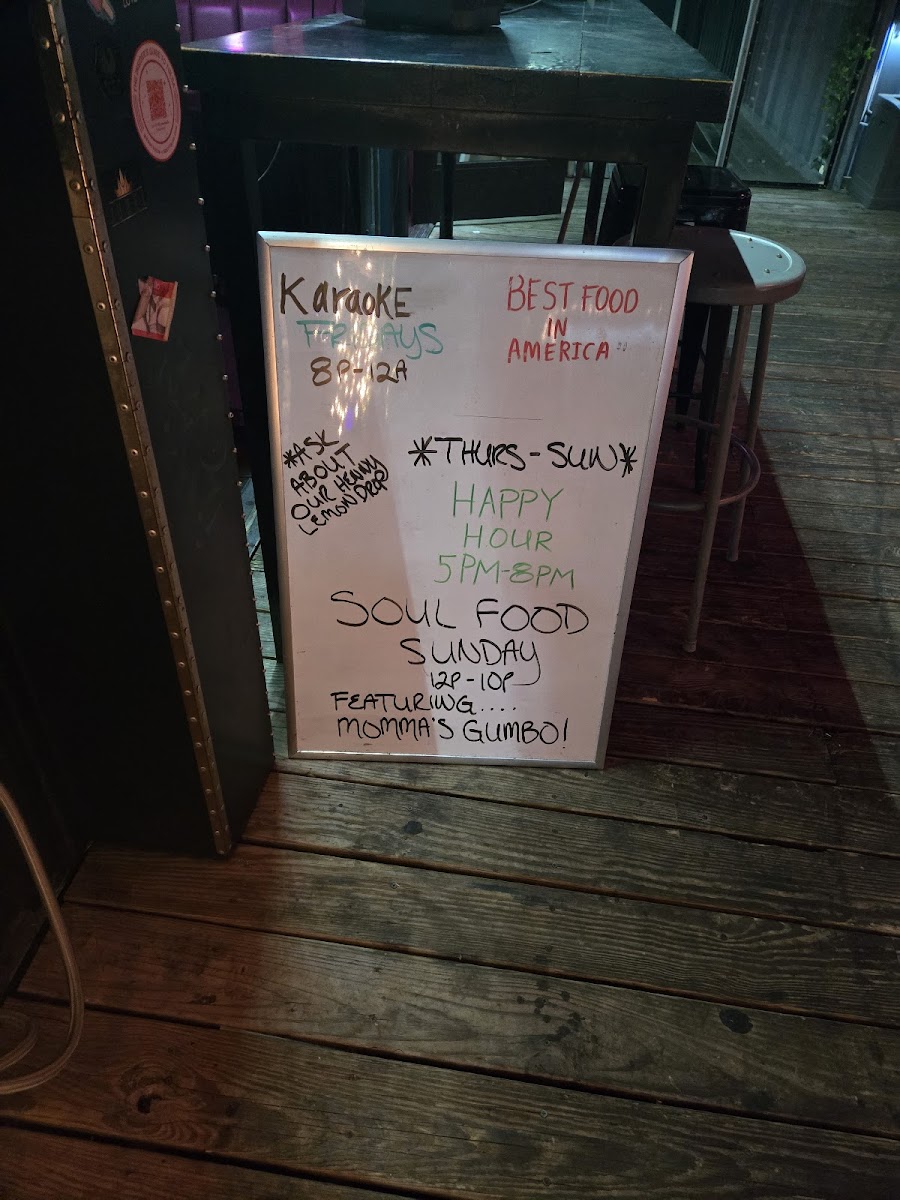 KaraoKE
FRIDAYS
8P-12A
BEST FOOD
IN
AMERICA
*ASK
ABOUT
OUR HENNY
LEMON DROP
*THURS-SUN*
HAPPY
HOUR
5PM-8PM
SOUL FOOD
SUNDAY
12P-10P
FEATURING....
MOMMA'S GUMBO!